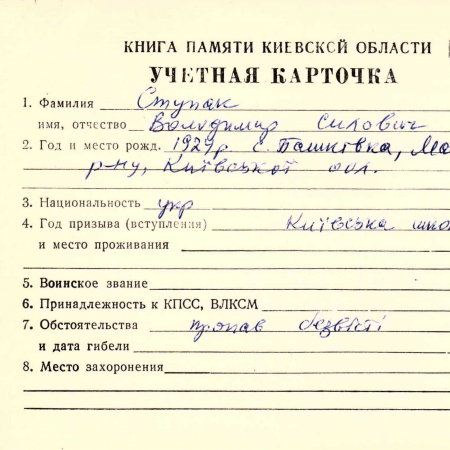 КНИГА ПАМЯТИ КИЕВСКОЙ ОБЛАСТИ
УЧЕТНАЯ КАРТОЧКА
1. Фамилия Ступак
имя, отчество Володимир Силович
2. Год и место рожд. 1929р с. Пашківка, Ма
р-ну, Київської обл.
3. Национальность укр
4. Год призыва (вступления) Київська
и место проживания
5. Воинское звание
6. Принадлежность к КПСС, ВЛКСМ
7. Обстоятельства пропав безвісті
и дата гибели
8. Место захоронения